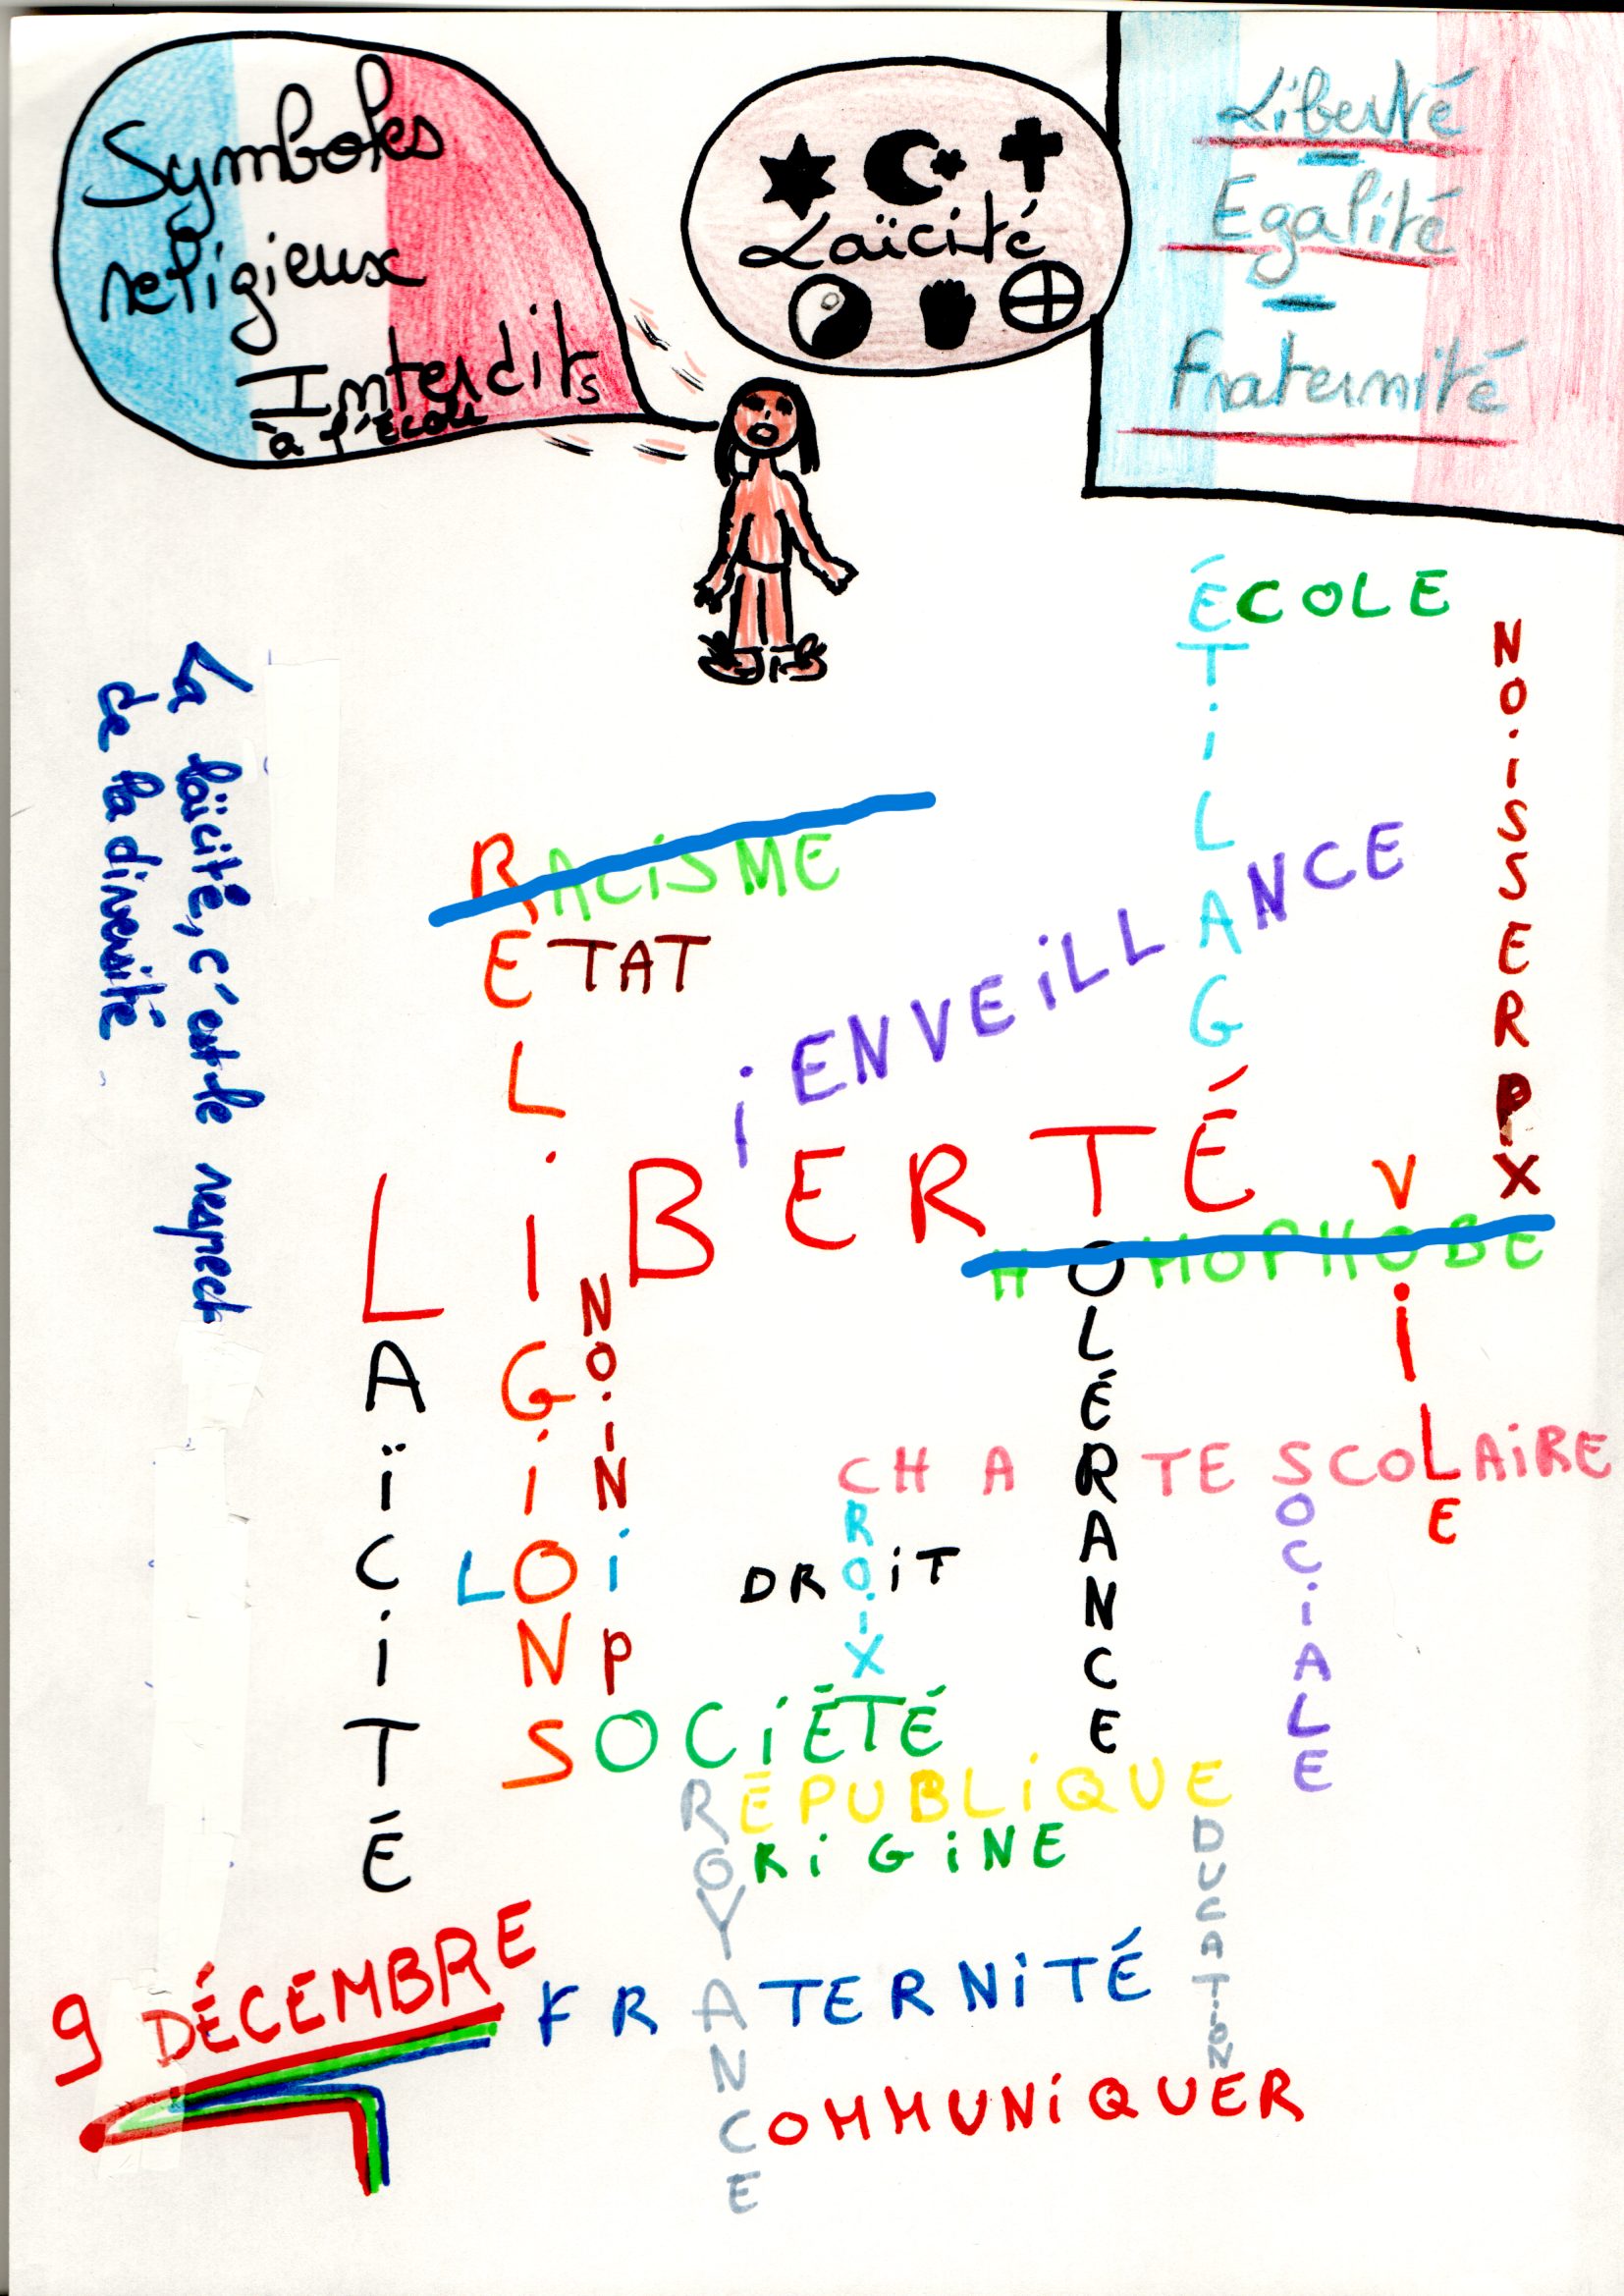 Symboles
religieux
Interdits
à l'école
Laïcité
Liberté
-
Egalité
-
Fraternité
ÉCOLE
ÉTiLAGÉ
NOiSSERPX
La laïcité, c'est le respect
de la diversité
RACiSME
ETAT
RELiGiONS
iENVEiLLANCE
LiBERTÉ
ViLE
HOMOPHOBE
LAÏCiTÉ
NOiNiP
TOLÉRANCE
CHARTE SCOLAiRE
CROiX
SOCiALE
LOi
DROiT
SOCiÉTÉ
RÉPUBLiQUE
CROYANCE
ORiGiNE
ÉDUCATiON
9 DÉCEMBRE
FRATERNiTÉ
COMMUNiQUER